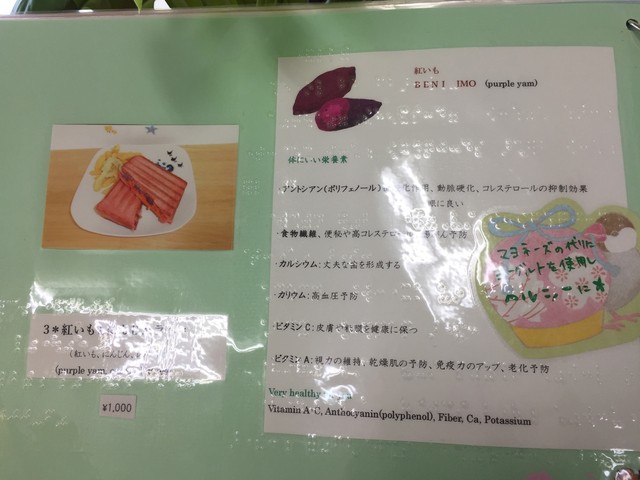 紅いも
BENI IMO (purple yam)
体にいい栄養素
・アントシアン(ポリフェノール) 化作用、動脈硬化、コレステロールの抑制効果
に良い
・食物繊維、便秘や高コレステロ 予防
・カルシウム:丈夫な歯を形成する
・カリウム:高血圧予防
・ビタミンC:皮膚や粘膜を健康に保つ
・ビタミンA:視力の維持、乾燥肌の予防、免疫力のアップ、老化予防
Very healthy
Vitamin A・C, Anthocyanin(polyphenol), Fiber, Ca, Potassium
マヨネーズの代りに
ヨーグルトを使用し
ヘルシーに★
3*紅いも
(紅いも、にんじん、
(purple yam,
¥1,000